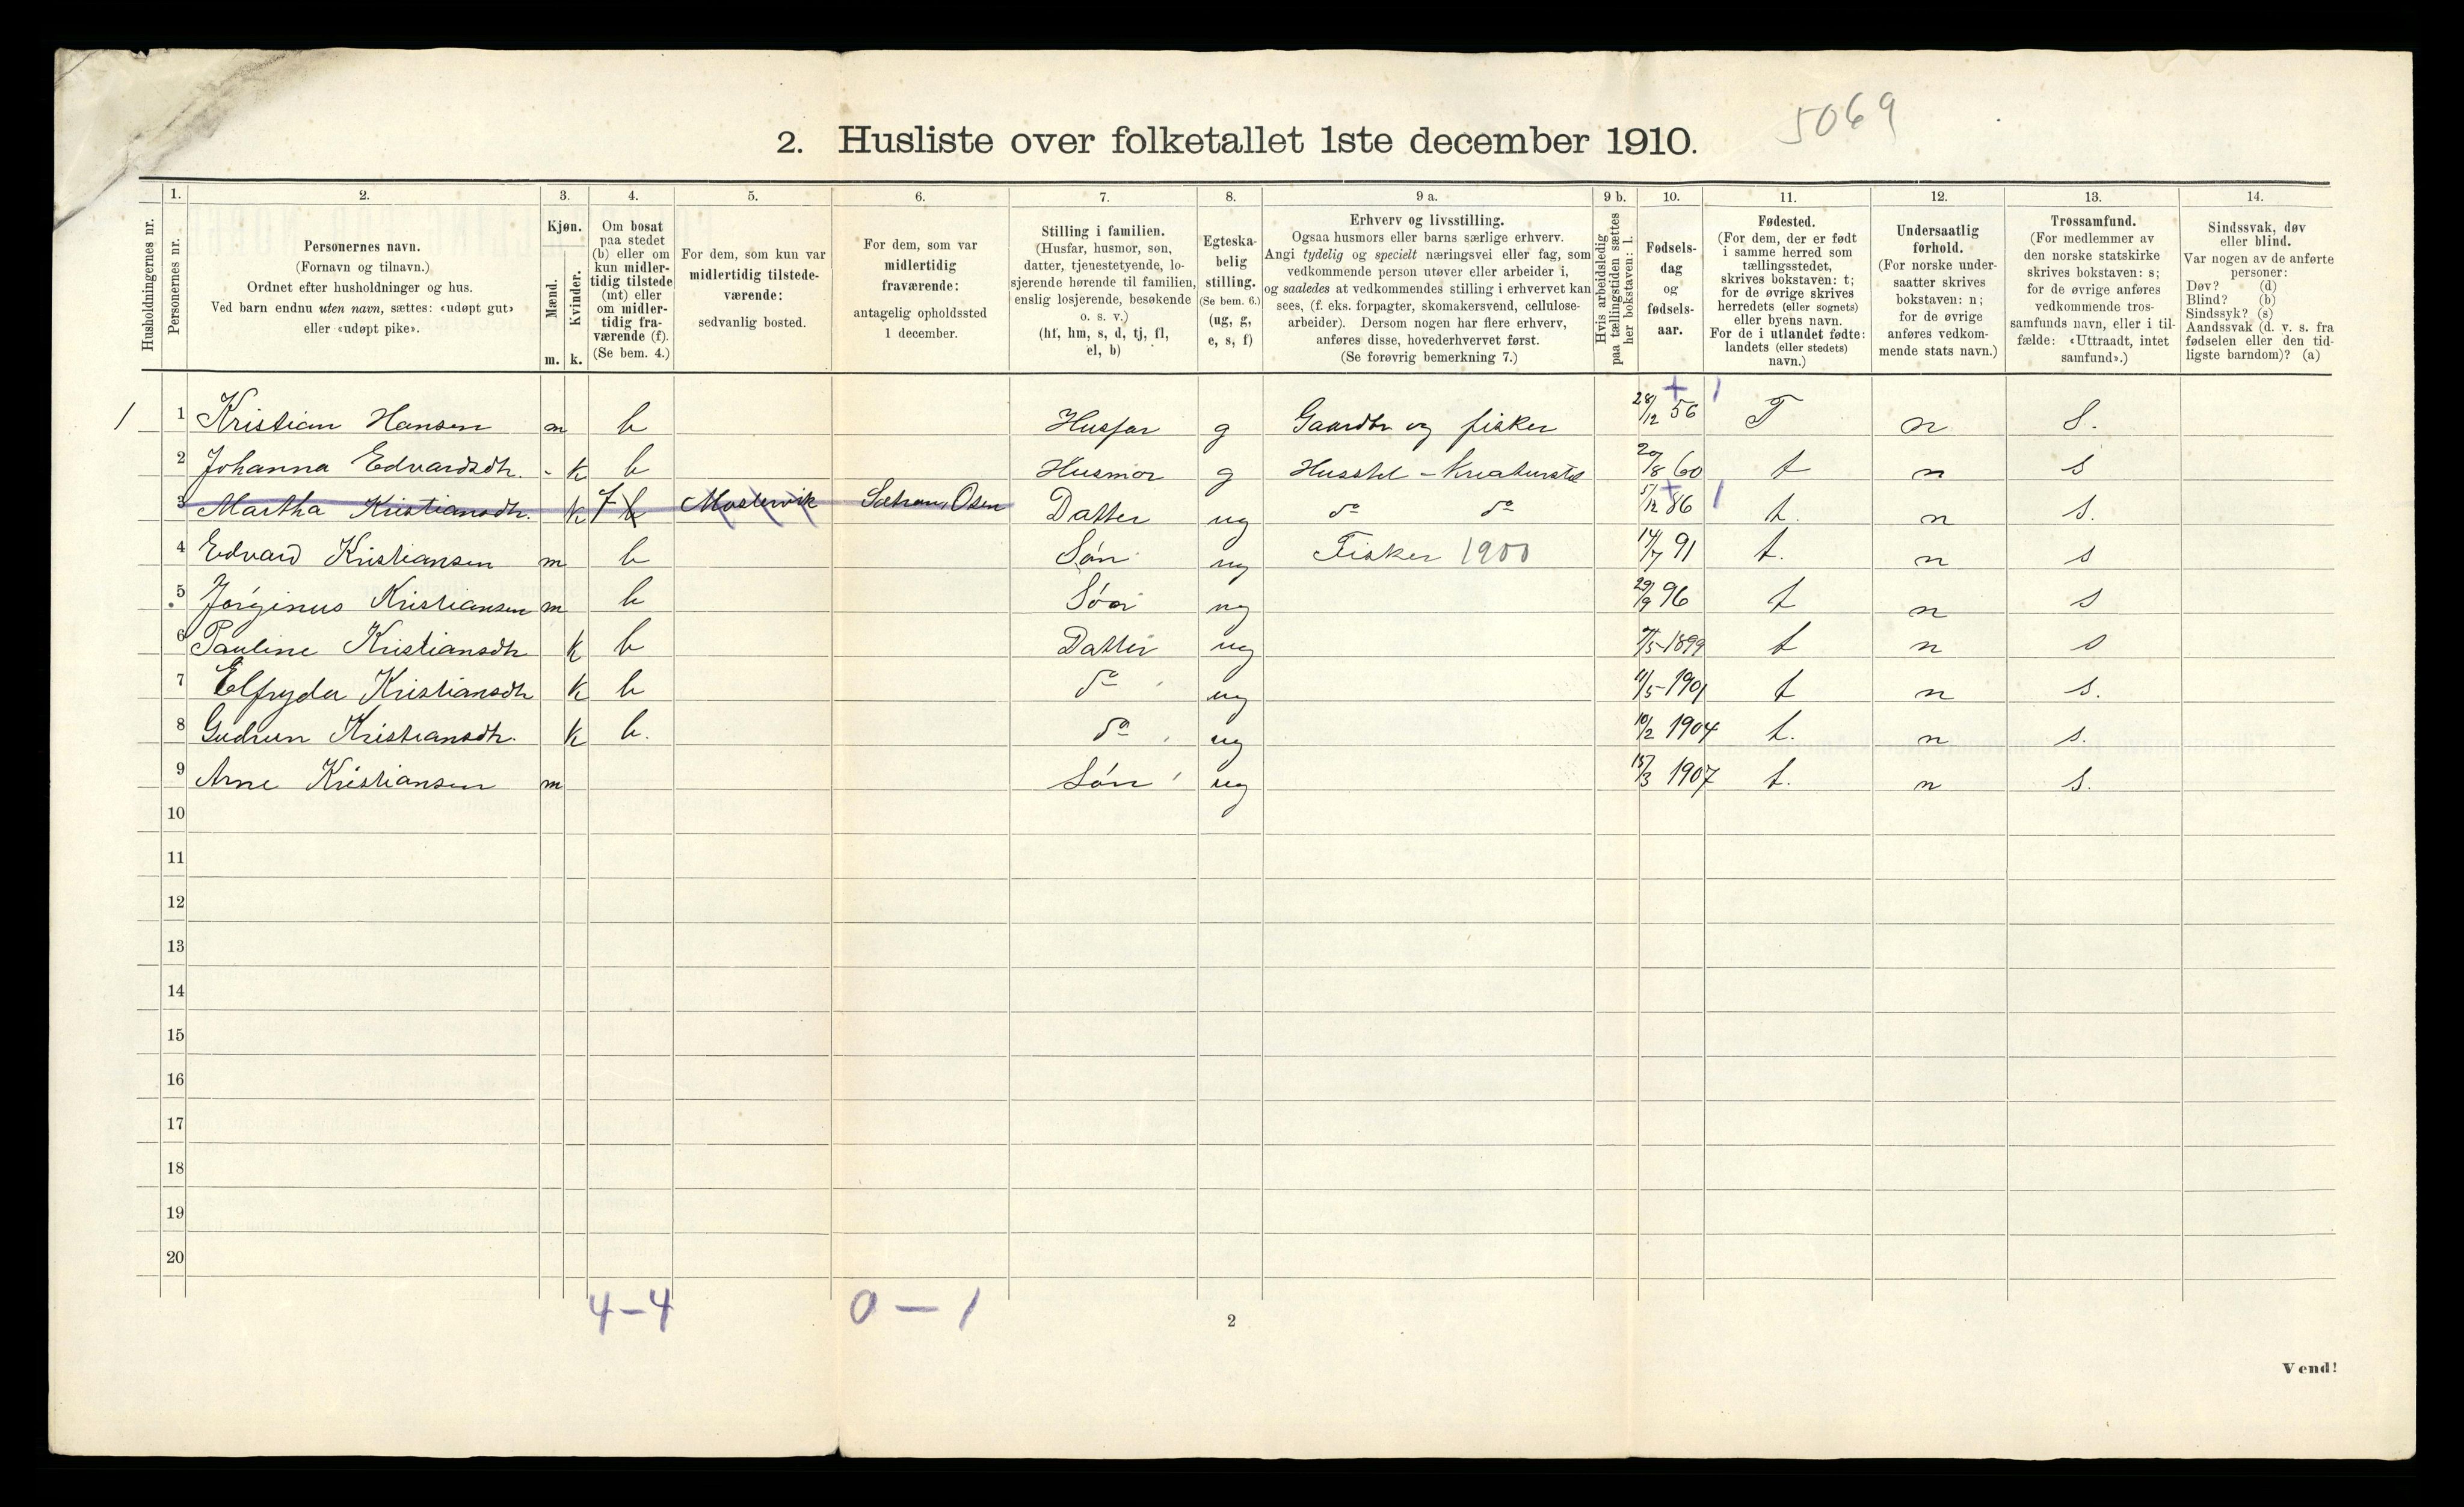 5069
2. Husliste over folketallet 1ste december 1910.
Husholdningernes nr.
1. Personernes nr.
2. Personernes navn.
(Fornavn og tilnavn.)
Ordnet efter husholdninger og hus.
Ved barn endnu uten navn, sættes: «udøpt gut»
eller «udøpt pike».
3. Kjøn.
Mænd. m.
Kvinder. k.
4. Om bosat
paa stedet
(b) eller om
kun midler-
tidig tilstede
(mt) eller
om midler-
tidig fra-
værende (f).
(Se bem. 4.)
5. For dem, som kun var
midlertidig tilstede-
værende:
sedvanlig bosted.
6. For dem, som var
midlertidig
fraværende:
antagelig opholdssted
1 december.
7. Stilling i familien.
(Husfar, husmor, søn,
datter, tjenestetyende, lo-
sjerende hørende til familien,
enslig losjerende, besøkende
o. s. v.)
(hf, hm, s, d, tj, fl,
el, b)
8. Egteska-
belig
stilling.
(Se bem. 6.)
(ug, g,
e, s, f)
9 a. Erhverv og livsstilling.
Ogsaa husmors eller barns særlige erhverv.
Angi tydelig og specielt næringsvei eller fag, som
vedkommende person utøver eller arbeider i,
og saaledes at vedkommendes stilling i erhvervet kan
sees, (f. eks. forpagter, skomakersvend, cellulose-
arbeider). Dersom nogen har flere erhverv,
anføres disse, hovederhvervet først.
(Se forøvrig bemerkning 7.)
9 b. Hvis arbeidsledig
paa tællingstiden sættes
her bokstaven: l.
10. Fødsels-
dag
og
fødsels-
aar.
11. Fødested.
(For dem, der er født
i samme herred som
tællingsstedet,
skrives bokstaven: t;
for de øvrige skrives
herredets (eller sognets)
eller byens navn.
For de i utlandet fødte:
landets (eller stedets)
navn.)
12. Undersaatlig
forhold.
(For norske under-
saatter skrives
bokstaven: n;
for de øvrige
anføres vedkom-
mende stats navn.)
13. Trossamfund.
(For medlemmer av
den norske statskirke
skrives bokstaven: s;
for de øvrige anføres
vedkommende tros-
samfunds navn, eller i til-
fælde: «Uttraadt, intet
samfund».)
14. Sindssvak, døv
eller blind.
Var nogen av de anførte
personer:
Døv? (d)
Blind? (b)
Sindssyk? (s)
Aandssvak (d. v. s. fra
fødselen eller den tid-
ligste barndom)? (a)
1 1 Kristian Hansen m b Husfar g Gaardbr og fisker 28/12 56 T n S.
2 Johanna Edvardsdtr. - k b Husmor g Husstel - Kreaturstel 20/8 60 t n s
3 Martha Kristiansdtr. k f b Mostervik Sætran, Osen Datter ug do do 5/12 86 t. n s.
4 Edvard Kristiansen m b Søn ug Fisker 1900 14/7 91 t. n s
5 Jørginus Kristiansen m b Søn ug 29/9 96 t n s
6 Pauline Kristiansdtr k b Datter ug /5-1899 t n s
7 Elfryda Kristiansdtr k b do ug 11/5-1901 t n s.
8 Gudrun Kristiansdtr. k b. do ug 10/2 1904 t. n s.
9 Arne Kristiansen m Søn ug 15/3 1907 t. n s.
10
11
12
13
14
15
16
17
18
19
20
4-4 0-1
2
Vend!